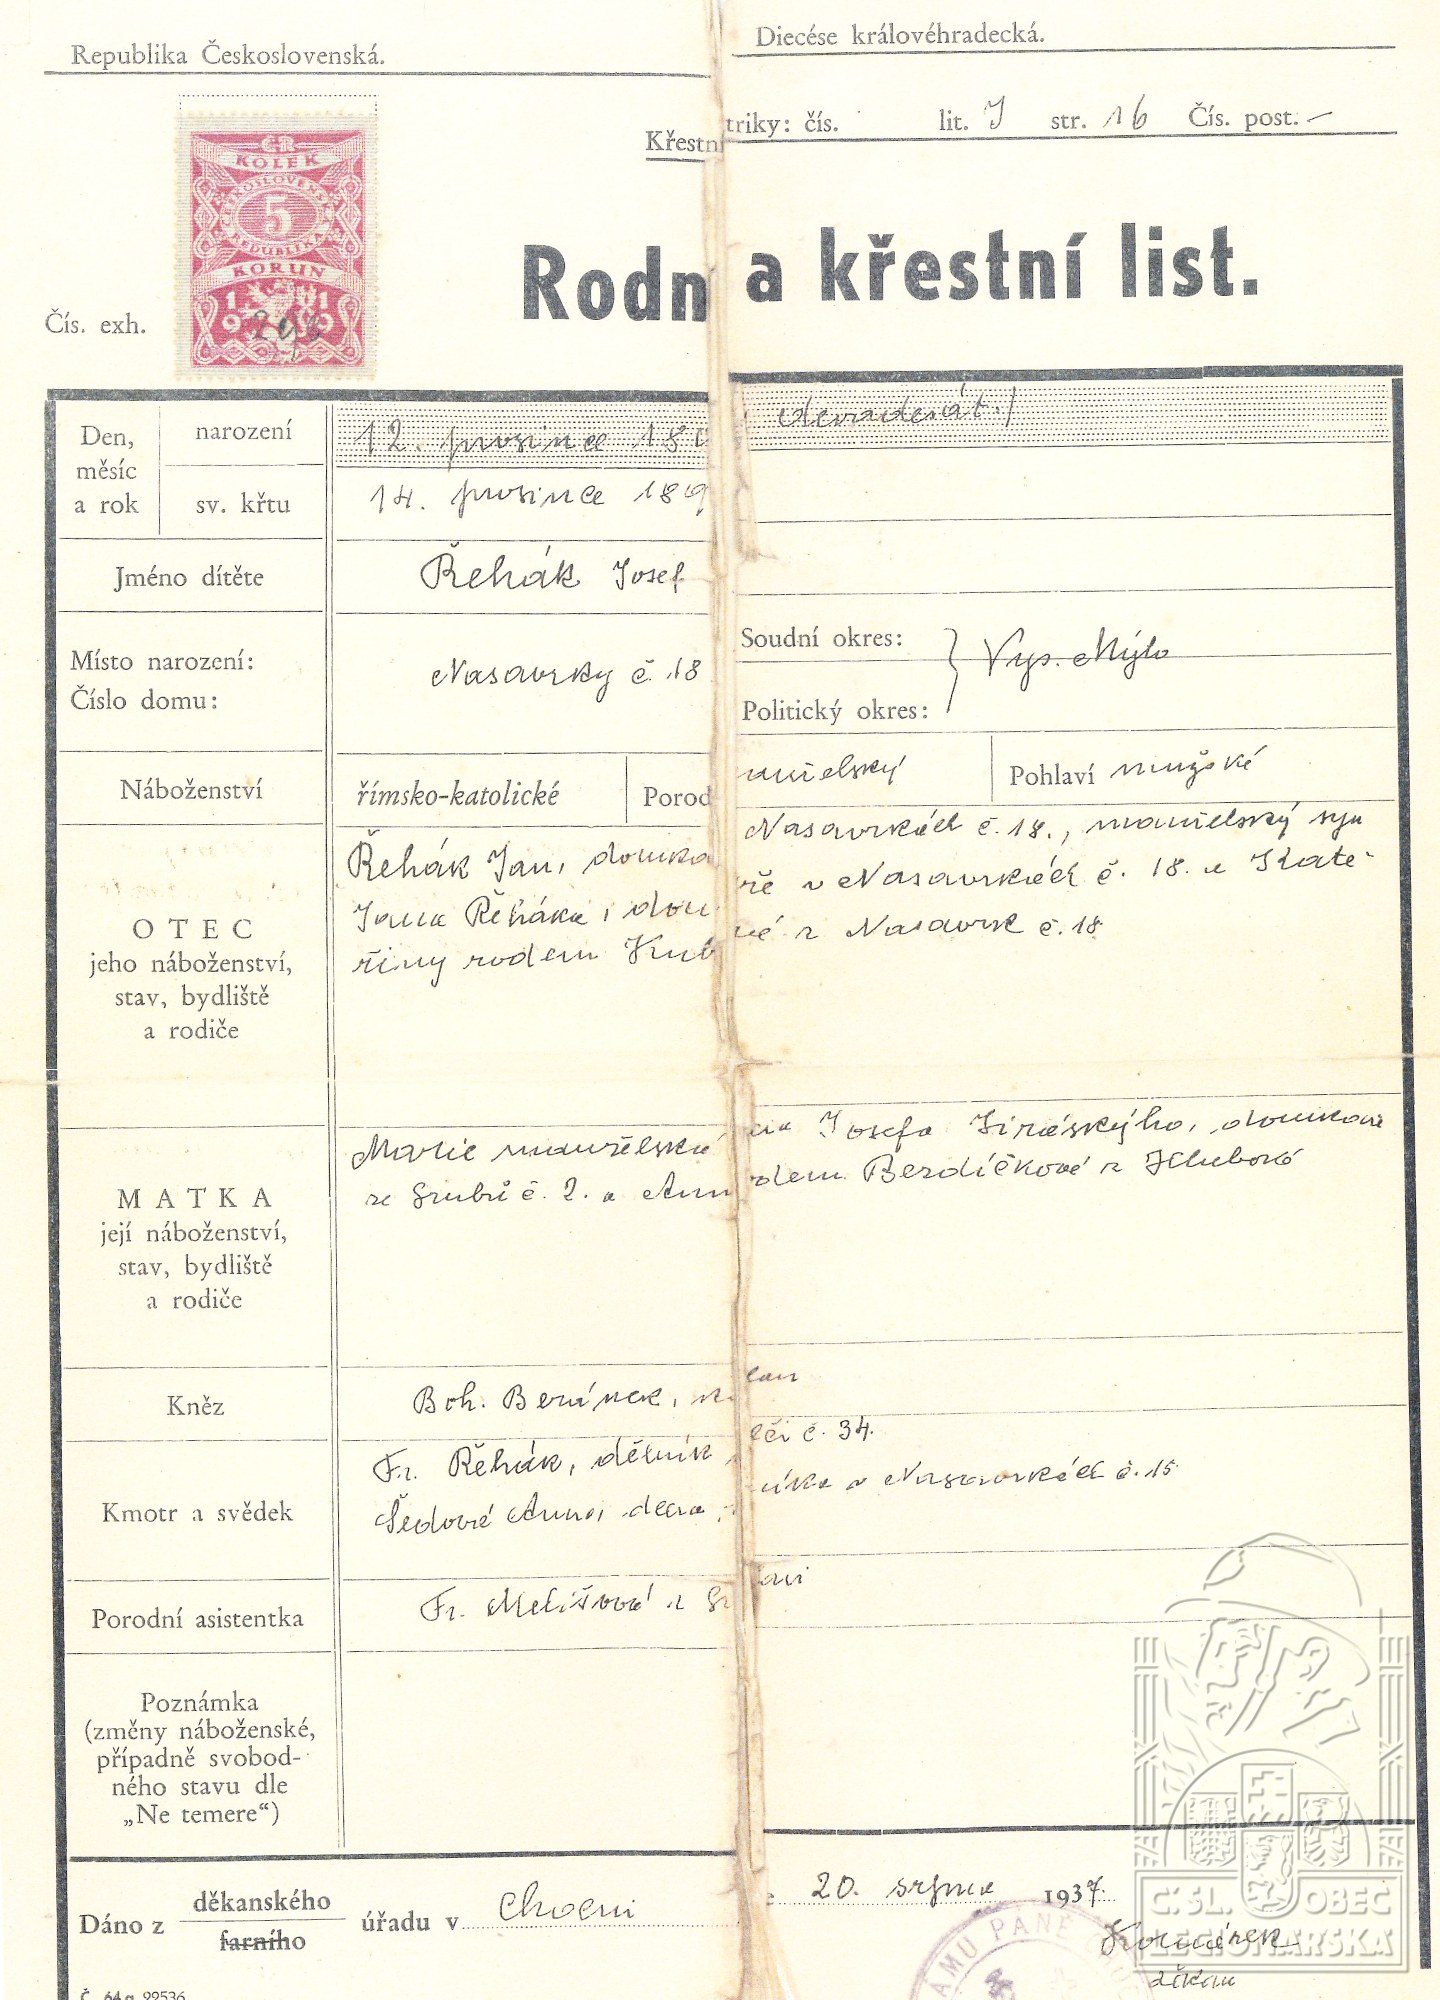 Republika Československá.
Diecése královéhradecká.
Křestn
triky: čís. lit. J str. 16 Čís. post. –
ČR
KOLEK
ČESKOSLOVENSKÁ
5
REPUBLIKA
KORUN
1919
Čís. exh.
Rodn a křestní list.
Den, měsíc a rok
narození
12. prosince 189 devadesát./
sv. křtu
14. prosince 189
Jméno dítěte
Řehák Josef
Místo narození:
Číslo domu:
Nasavrky č. 18
Soudní okres:
Politický okres:
Vys. Mýto
Náboženství
římsko-katolické
Porod
manželský
Pohlaví mužské
OTEC
jeho náboženství,
stav, bydliště
a rodiče
Řehák Jan, domká Nasavrkách č. 18., manželský syn
Jana Řeháka, dom ře v Nasavrkách č. 18. a Kate-
řiny rodem Kub vé z Nasavrk č. 18
MATKA
její náboženství,
stav, bydliště
a rodiče
Marie manželská Josefa Jiráského, domkáře
ze Srubů č. 2. a Ann dem Berdíčkové z Hluboké
Kněz
Boh. Beránek, lan
Kmotr a svědek
Fr. Řehák, dělník č. 34.
Šedová Anna, dcera níka v Nasavrkách č. 15
Porodní asistentka
Fr. Melišová z
Poznámka
(změny náboženské,
případně svobod-
ného stavu dle
„Ne temere“)
Dáno z
děkanského
farního
úřadu v Chocni 20. srpna 1937.
děkan
Č. 64a 22536
ČSL. OBEC
LEGIONÁŘSKÁ